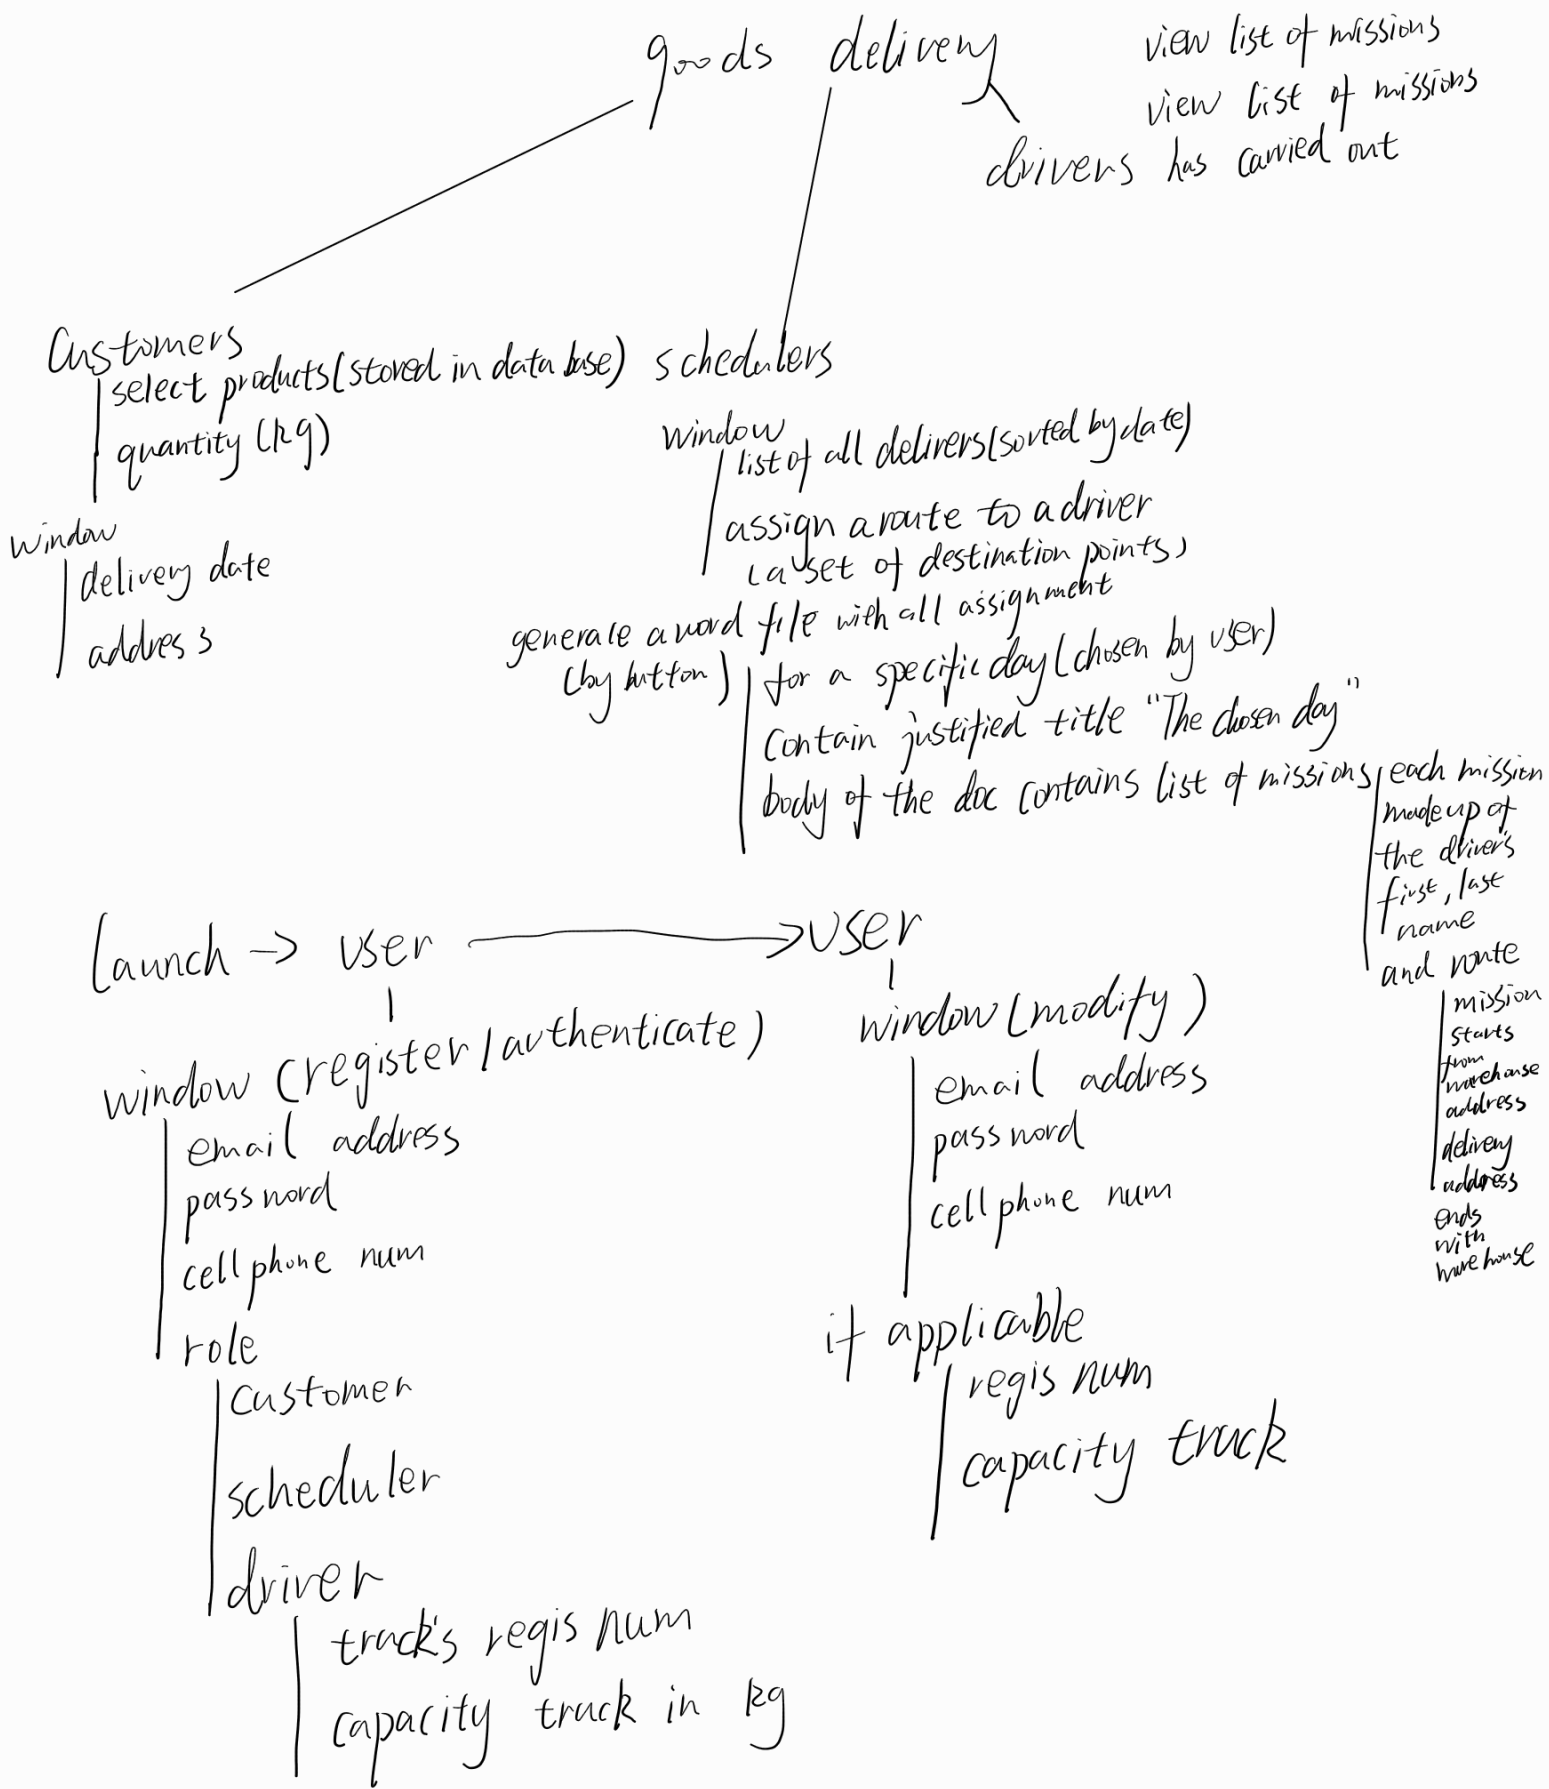 goods delivery
view list of missions
view list of missions
drivers has carried out
Customers
select products (stored in data base)
quantity (kg)
window
delivery date
address
schedulers
window
list of all delivers (sorted by date)
assign a route to a driver
(a set of destination points)
generate a word file with all assignment
(by button)
for a specific day (chosen by user)
contain justified title "The chosen day"
body of the doc contains list of missions
each mission
made up of
the driver's
first, last
name
and route
mission
starts
from
warehouse
address
delivery
address
ends
with
warehouse
Launch -> user -> user
window (register / authenticate)
email address
password
cell phone num
role
customer
scheduler
driver
truck's regis num
capacity truck in kg
window (modify)
email address
password
cell phone num
if applicable
regis num
capacity truck